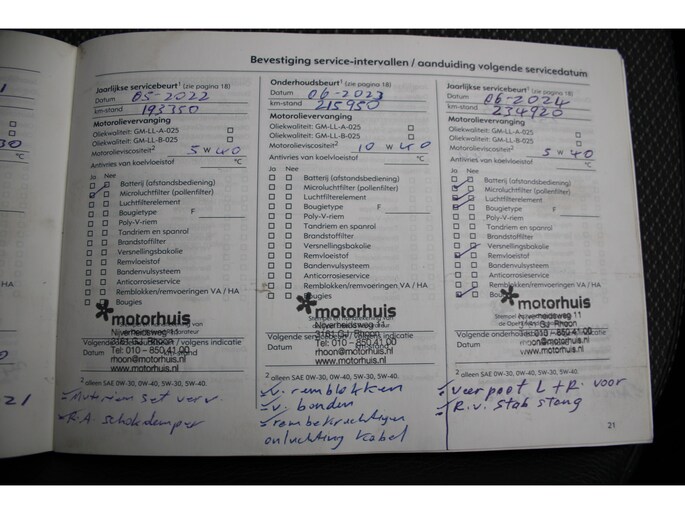 Bevestiging service-intervallen / aanduiding volgende servicedatum
Jaarlijkse servicebeurt¹ (zie pagina 18)
Datum 05-2022
km-stand 193350
Motorolieverversing
Oliekwaliteit: GM-LL-A-025
Oliekwaliteit: GM-LL-B-025
Motorolieviscositeit² 5 W 40
Antivries van koelvloeistof °C
Ja Nee
Batterij (afstandsbediening)
Microluchtfilter (pollenfilter)
Luchtfilterelement
Bougietype F
Poly-V-riem
Tandriem en spanrol
Brandstoffilter
Versnellingsbakolie
Remvloeistof
Bandenvulsysteem
Anticorrosieservice
Remblokken/remvoeringen VA / HA
Bougies
motorhuis
Nijverheidsweg 11
3161 GJ Rhoon
Tel: 010 - 850 41 00
rhoon@motorhuis.nl
www.motorhuis.nl
Datum
² alleen SAE 0W-30, 0W-40, 5W-30, 5W-40.
R.A. schokdemper
Onderhoudsbeurt¹ (zie pagina 18)
Datum 06-2023
km-stand 215950
Motorolieverversing
Oliekwaliteit: GM-LL-A-025
Oliekwaliteit: GM-LL-B-025
Motorolieviscositeit² 10 W 40
Antivries van koelvloeistof °C
Ja Nee
Batterij (afstandsbediening)
Microluchtfilter (pollenfilter)
Luchtfilterelement
Bougietype F
Poly-V-riem
Tandriem en spanrol
Brandstoffilter
Versnellingsbakolie
Remvloeistof
Bandenvulsysteem
Anticorrosieservice
Remblokken/remvoeringen VA / HA
Bougies
motorhuis
Nijverheidsweg 11
3161 GJ Rhoon
Tel: 010 - 850 41 00
rhoon@motorhuis.nl
www.motorhuis.nl
Datum
² alleen SAE 0W-30, 0W-40, 5W-30, 5W-40.
v. remblokken
v. banden
rembekrachtigen
ontluchting kabel
Jaarlijkse servicebeurt¹ (zie pagina 18)
Datum 06-2024
km-stand 234920
Motorolieverversing
Oliekwaliteit: GM-LL-A-025
Oliekwaliteit: GM-LL-B-025
Motorolieviscositeit² 5 W 40
Antivries van koelvloeistof °C
Ja Nee
Batterij (afstandsbediening)
Microluchtfilter (pollenfilter)
Luchtfilterelement
Bougietype F
Poly-V-riem
Tandriem en spanrol
Brandstoffilter
Versnellingsbakolie
Remvloeistof
Bandenvulsysteem
Anticorrosieservice
Remblokken/remvoeringen VA / HA
Bougies
motorhuis
Nijverheidsweg 11
3161 GJ Rhoon
Tel: 010 - 850 41 00
rhoon@motorhuis.nl
www.motorhuis.nl
Datum
² alleen SAE 0W-30, 0W-40, 5W-30, 5W-40.
veerpoot L + R. voor
R.v. stab stang
21